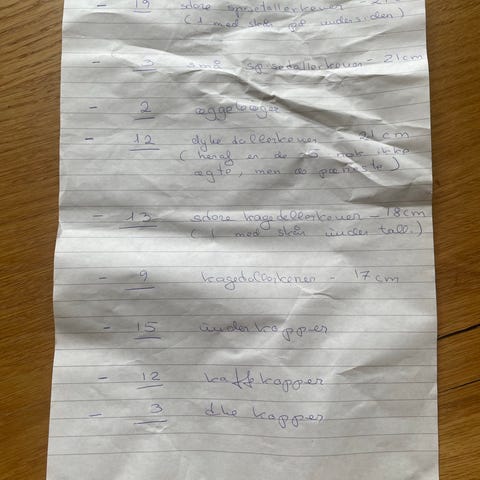 - 19 store spisetallerkener - 2
( 1 med skår på undersiden )
- 3 små spisetallerkener - 21cm
- 2 æggebæger
- 12 dybe tallerkener - 21 cm
( heraf er de nok ikke
ægte, men de pæneste )
- 13 store kagetallerkener - 18cm
( 1 med skår under tall. )
- 9 kagetallerkener - 17cm
- 15 underkopper
- 12 kaffekopper
- 3 the kopper